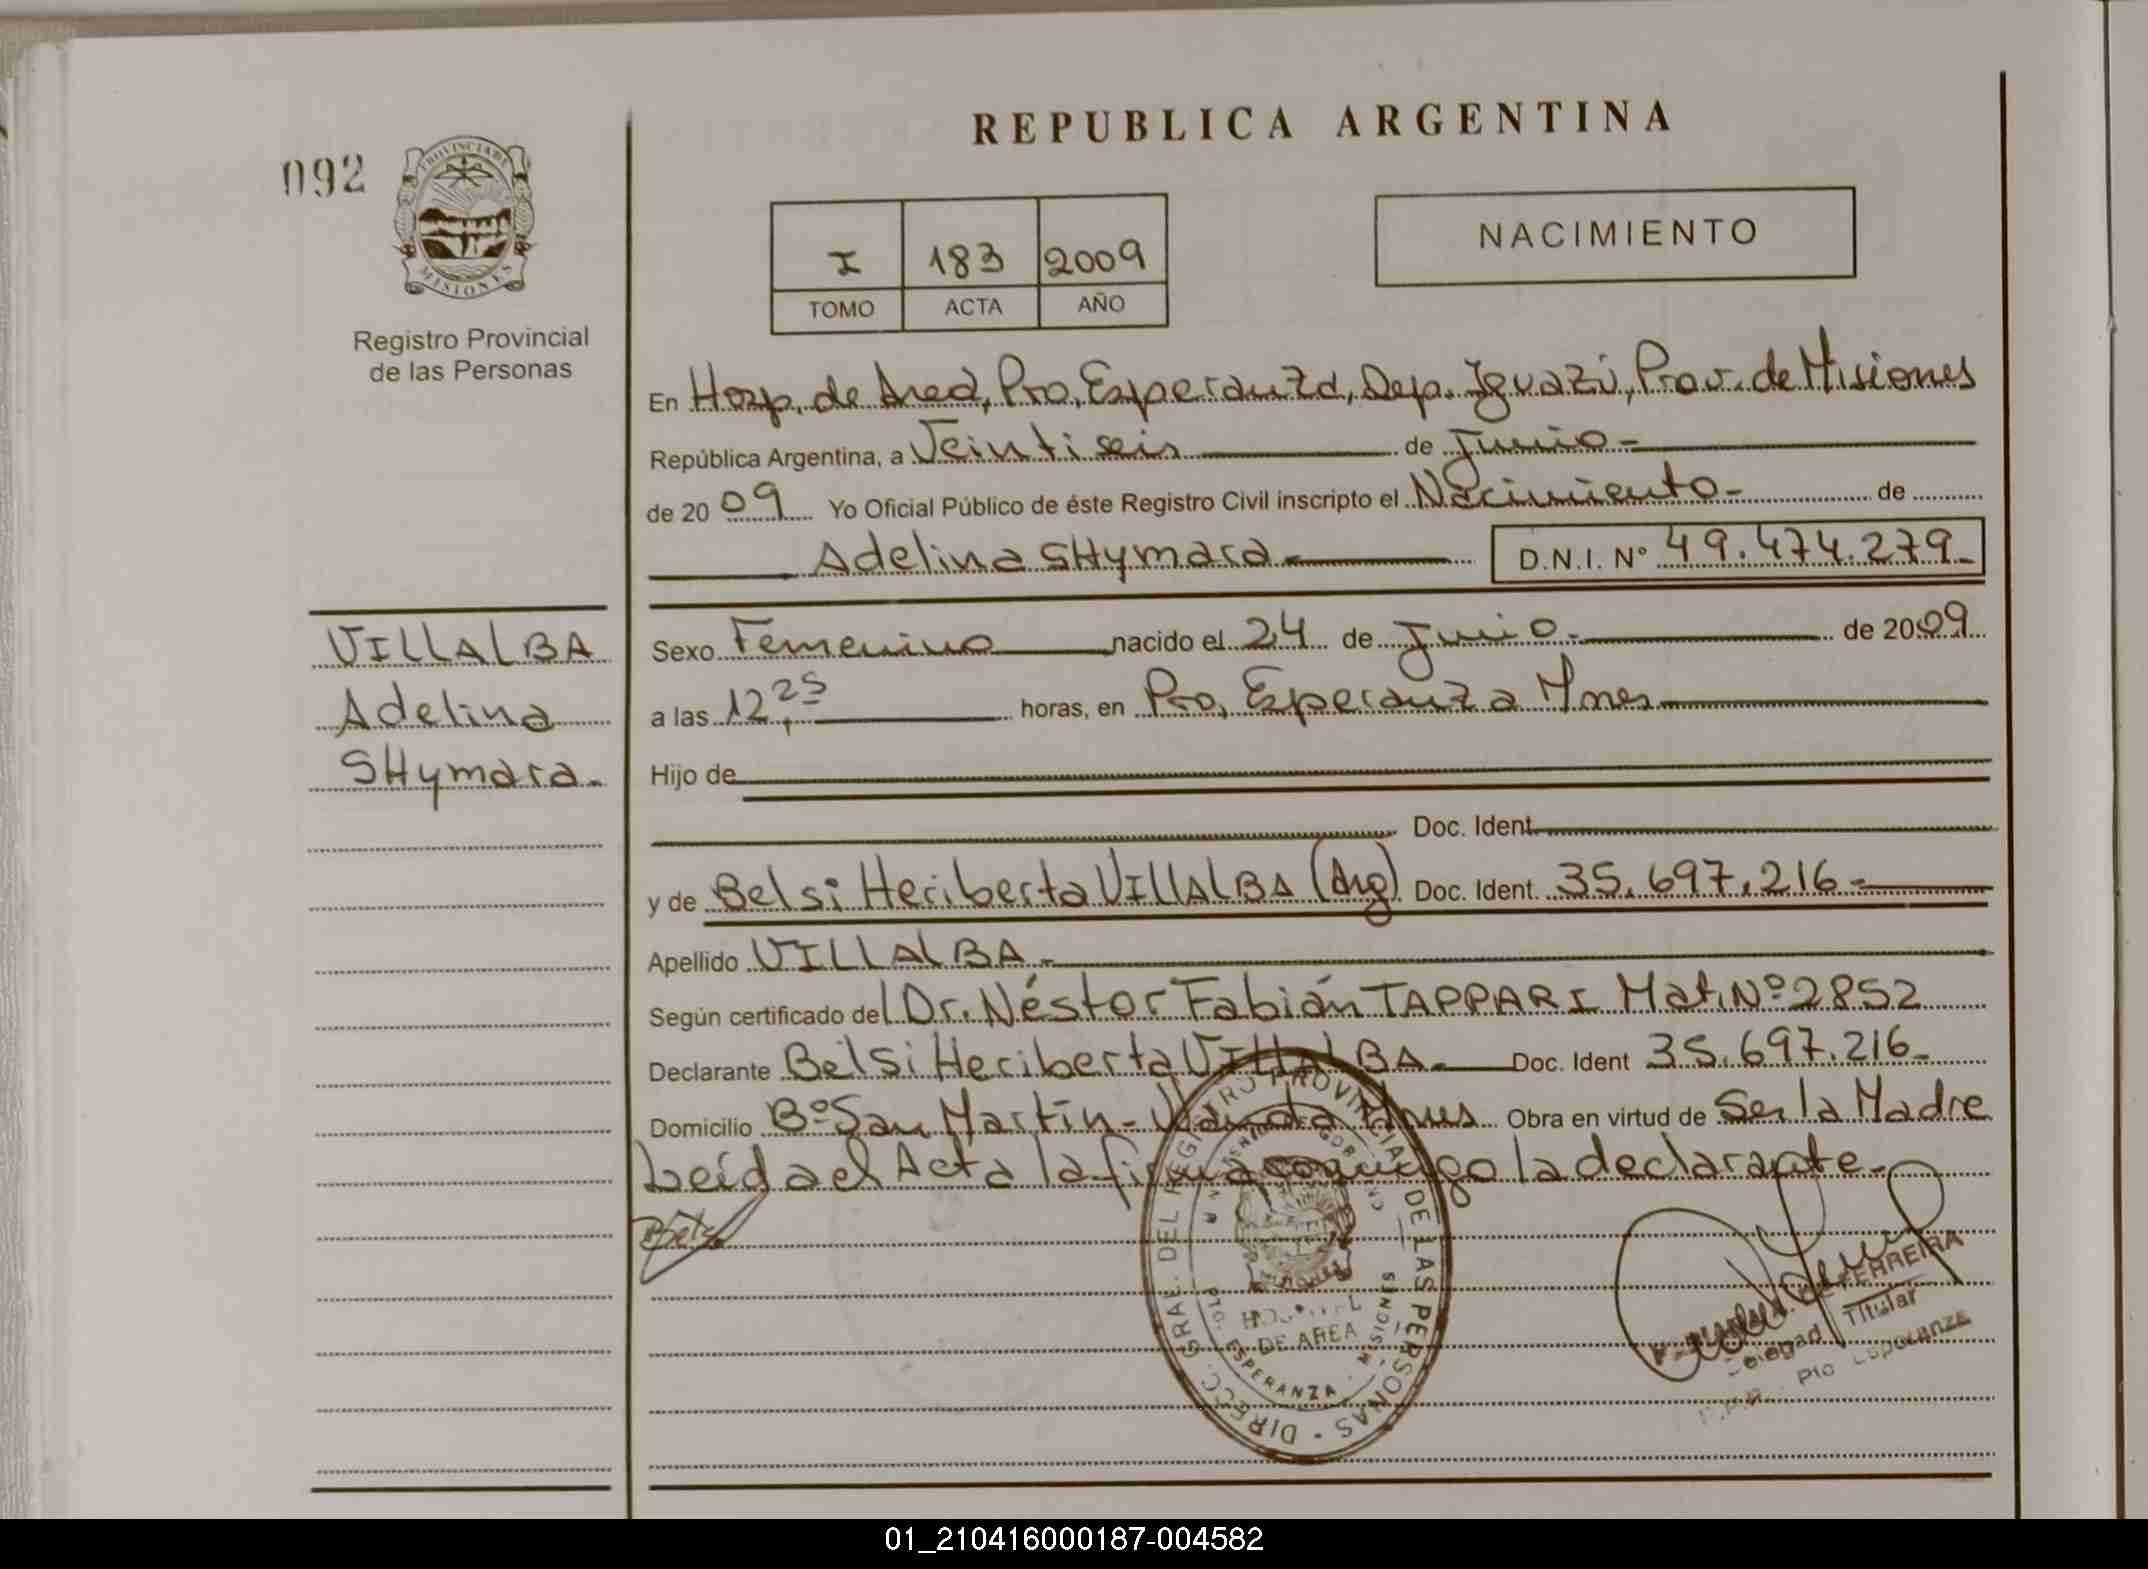 REPUBLICA ARGENTINA
092
PROVINCIA DE
MISIONES
Registro Provincial
de las Personas
I 183 2009
TOMO ACTA AÑO
NACIMIENTO
En Hosp. de Area, Pto. Esperanza, Dep. Iguazú, Prov. de Misiones
República Argentina, a Veintiseis de Junio.-
de 2009 Yo Oficial Público de éste Registro Civil inscripto el Nacimiento- de
Adelina SHymara- D.N.I. Nº 49.474.279-
VILLALBA
Adelina
SHymara.-
Sexo Femenino nacido el 24 de Junio.- de 2009
a las 12,25 horas, en Pto. Esperanza Mnes
Hijo de
Doc. Ident.
y de Belsi Heriberta VILLALBA (Arg) Doc. Ident. 35.697.216-
Apellido VILLALBA.-
Según certificado del Dr. Néstor Fabián TAPPARI Mat. Nº 2852
Declarante Belsi Heriberta VILLALBA.- Doc. Ident 35.697.216-
Domicilio Bº San Martín- Wanda Mnes Obra en virtud de Ser la Madre
Leída el Acta la firma conmigo la declarante.-
DIRECC. GRAL. DEL REGISTRO PROVINCIAL DE LAS PERSONAS
HOSPITAL
DE AREA
ESPERANZA - MISIONES
FERREIRA
Titular
Pto Esperanza
01_210416000187-004582